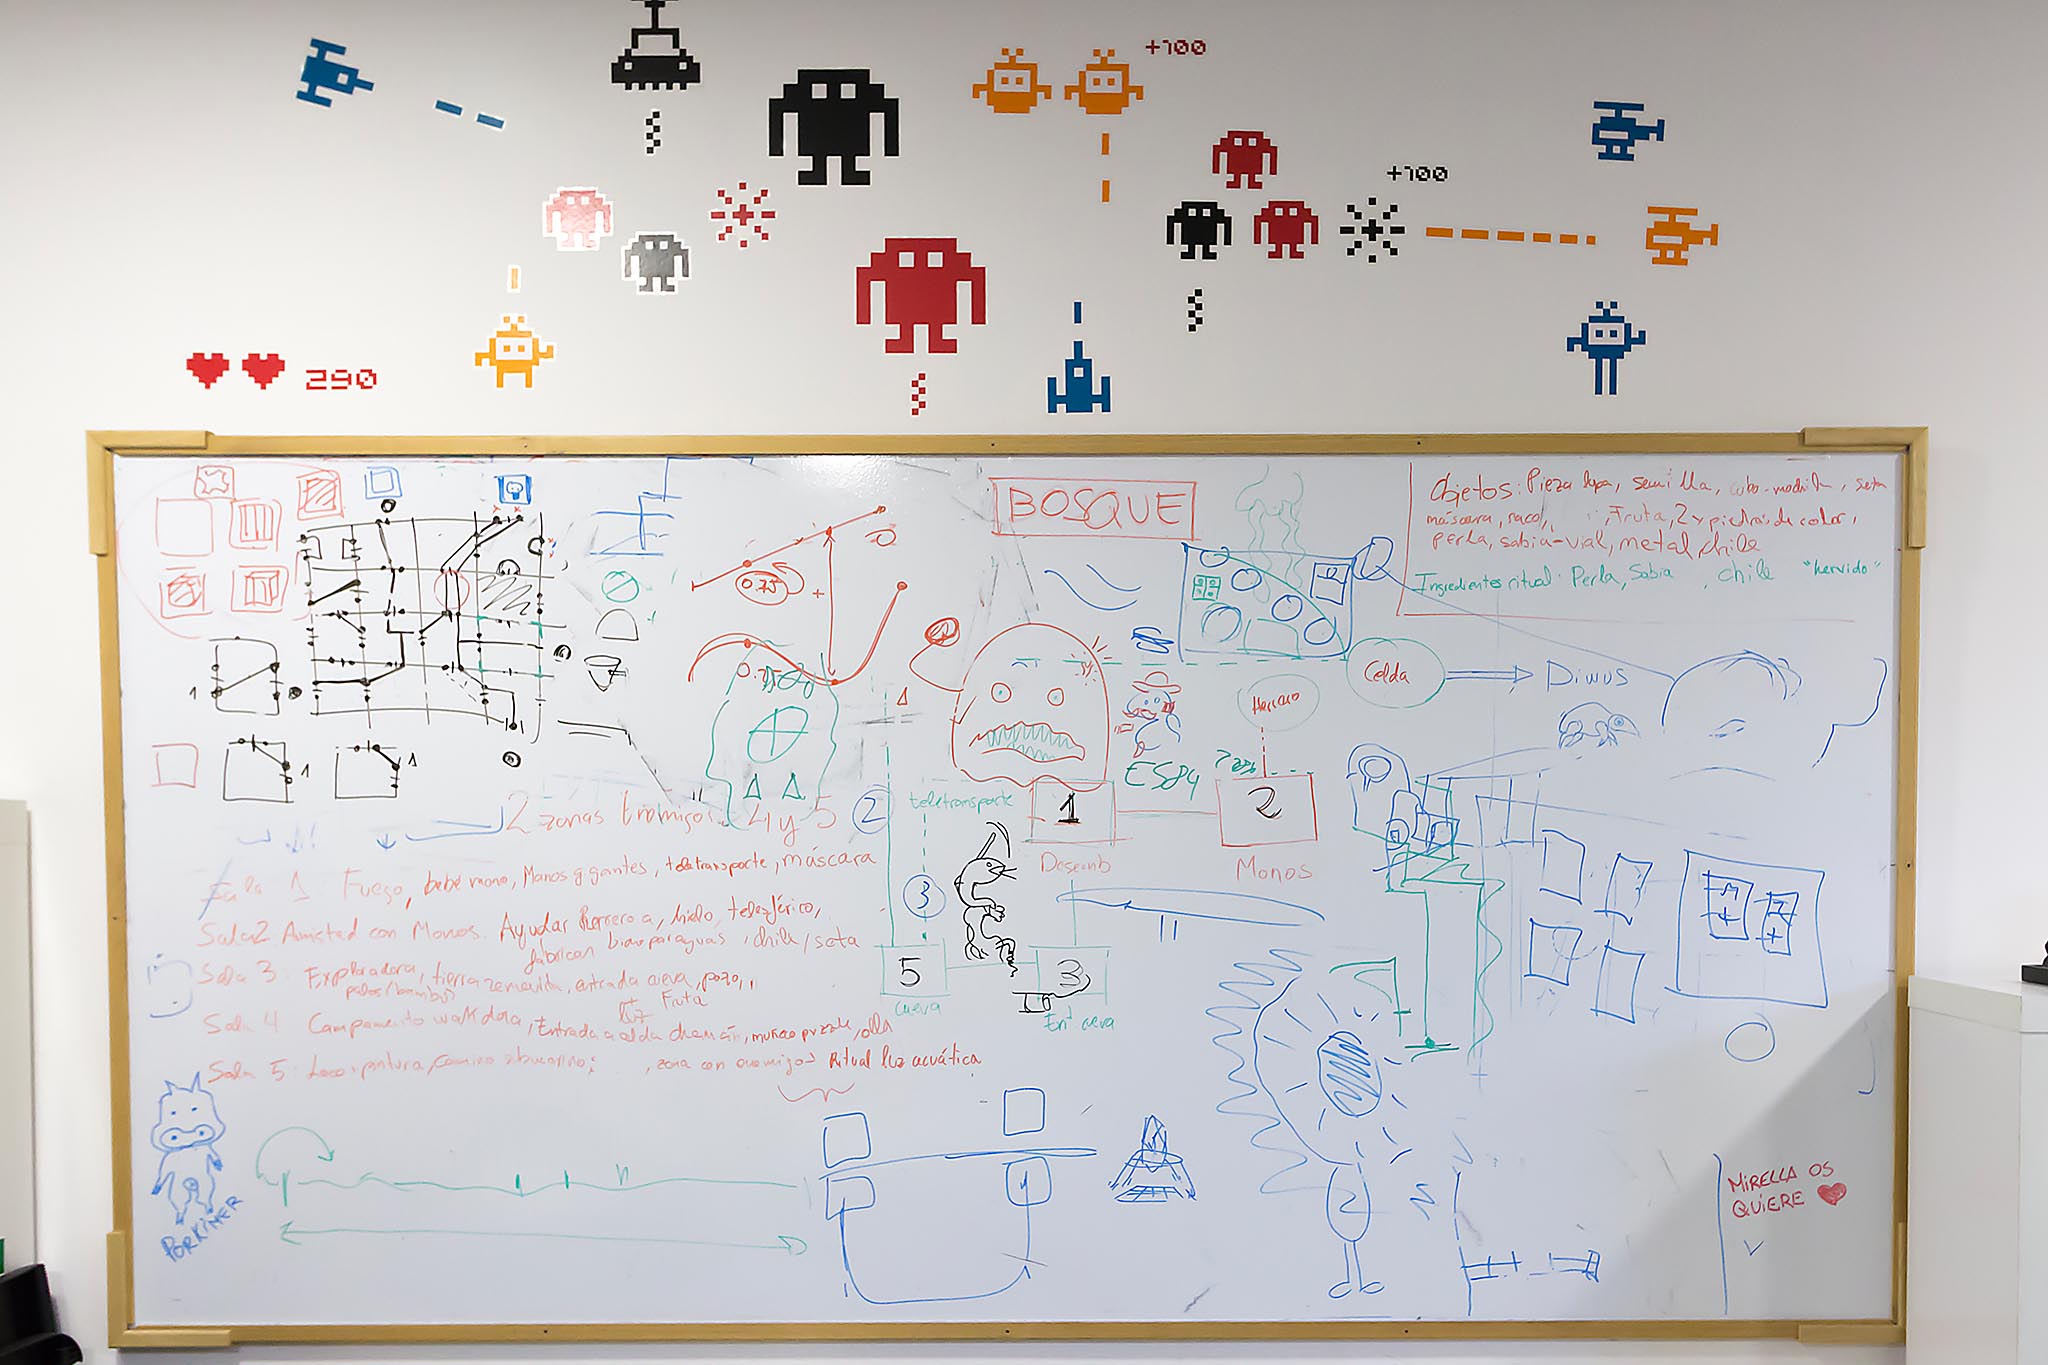 +100
+100
290
BOSQUE
Objetos: Pieza lupa, semilla, cubo-madera, seta
máscara, saco, , Fruta, 2 y piedras de color,
perla, sabia-vial, metal, chile
Ingredientes ritual: Perla, Sabia , chile "hervido"
0.75
+
0.75
Celda
Diwus
Herrero
ES84
teletransporte
1
2
Desemb
Monos
2
3
5
cueva
3
1
1
1
2 zonas enemigos: 4 y 5
Sala 1: Fuego, bebé mono, Monos gigantes, teletransporte, máscara
Sala 2 Amistad con Monos. Ayudar Herrero a, hielo, teleférico,
fabrican paraguas, chile/seta
Sala 3: Exploradora, tierra removida, entrada cueva, pozo,
palos (bambus)
Fruta
Sala 4 Campamento , Entrada a celda chamán, puzzle, olla
luz
Sala 5: , , zona con enemigos Ritual luz acuática
PORKINER
MIRELLA OS
QUIERE